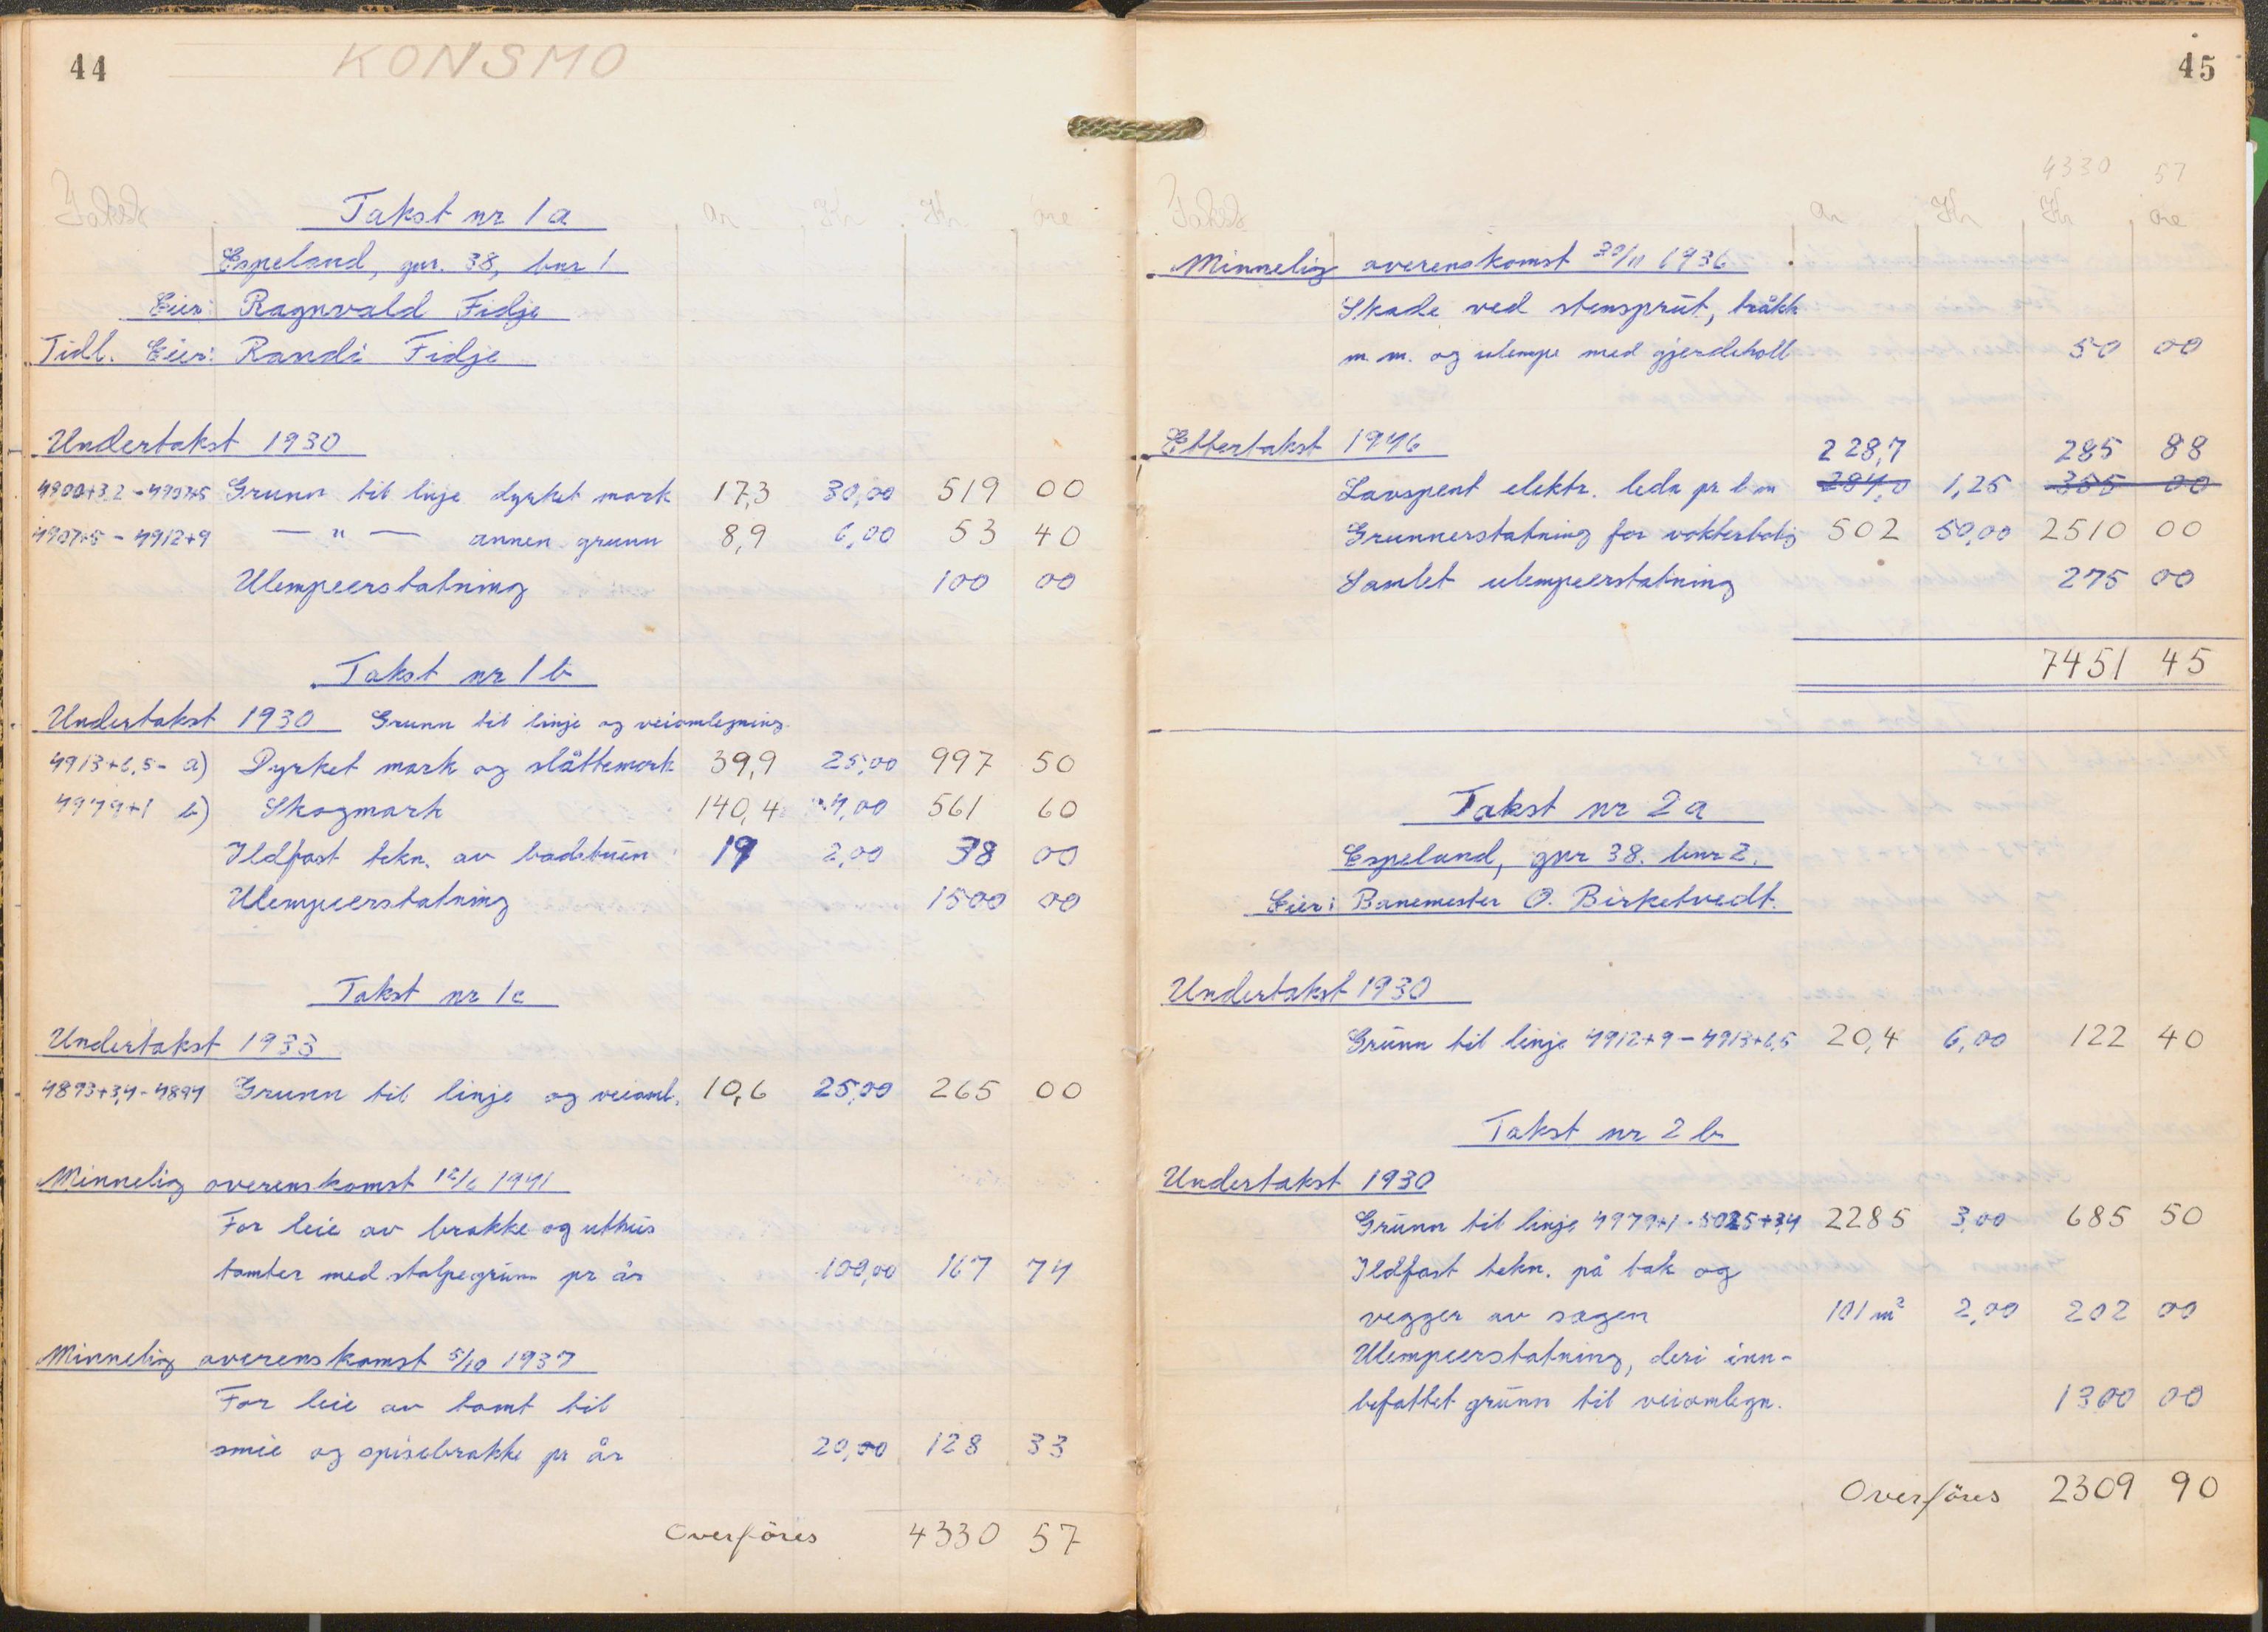 44
KONSMO
Takst ar Kr Kr øre
Takst nr 1a
Espeland, gnr. 38, bnr 1
Eier: Ragnvald Fidje
Tidl. Eier: Randi Fidje
Undertakst 1930
4900+3,2-4907+5 Grunn til linje dyrket mark 17,3 30,00 519 00
4907+5-4912+9 — " — annen grunn 8,9 6,00 53 40
Ulempeerstatning 100 00
Takst nr 1 b
Undertakst 1930 Grunn til linje og veiomlegning.
4913+6,5- a) Dyrket mark og slåttemark 39,9 25,00 997 50
4979+1 b) Skogmark 140,4 4,00 561 60
Ildfast tekn. av badstuen 19 2,00 38 00
Ulempeerstatning 1500 00
Takst nr 1c
Undertakst 1933
4893+3,4-4894 Grunn til linje og veioml. 10,6 25,00 265 00
Minnelig overenskomst 12/6 1941
For leie av brakke og uthus
tomter med stolpegrunn pr år 100,00 167 74
Minnelig overenskomst 5/10 1937
For leie av tomt til
smie og spisebrakke pr år 20,00 128 33
Overføres 4330 57
45
4330 57
Takst ar Kr Kr øre
Minnelig overenskomst 30/11 1936
Skade ved stensprut, tråkk
m.m. og ulempe med gjerdehold 50 00
Ettertakst 1946 228,7 285 88
Lavspent elektr. ledn pr l m 284,0 1,25 355 00
Grunnerstatning for vokterbolig 502 50,00 2510 00
Samlet ulempeerstatning 275 00
7451 45
Takst nr 2a
Espeland, gnr 38. bnr 2.
Eier: Banemester O. Birketvedt.
Undertakst 1930
Grunn til linje 4912+9-4913+6,5 20,4 6,00 122 40
Takst nr 2 b
Undertakst 1930
Grunn til linje 4979+1-5025+3,4 2285 3,00 685 50
Ildfast tekn. på tak og
vegger av sagen 101 m² 2,00 202 00
Ulempeerstatning, deri inn-
befattet grunn til veiomlegn. 1300 00
Overføres 2309 90